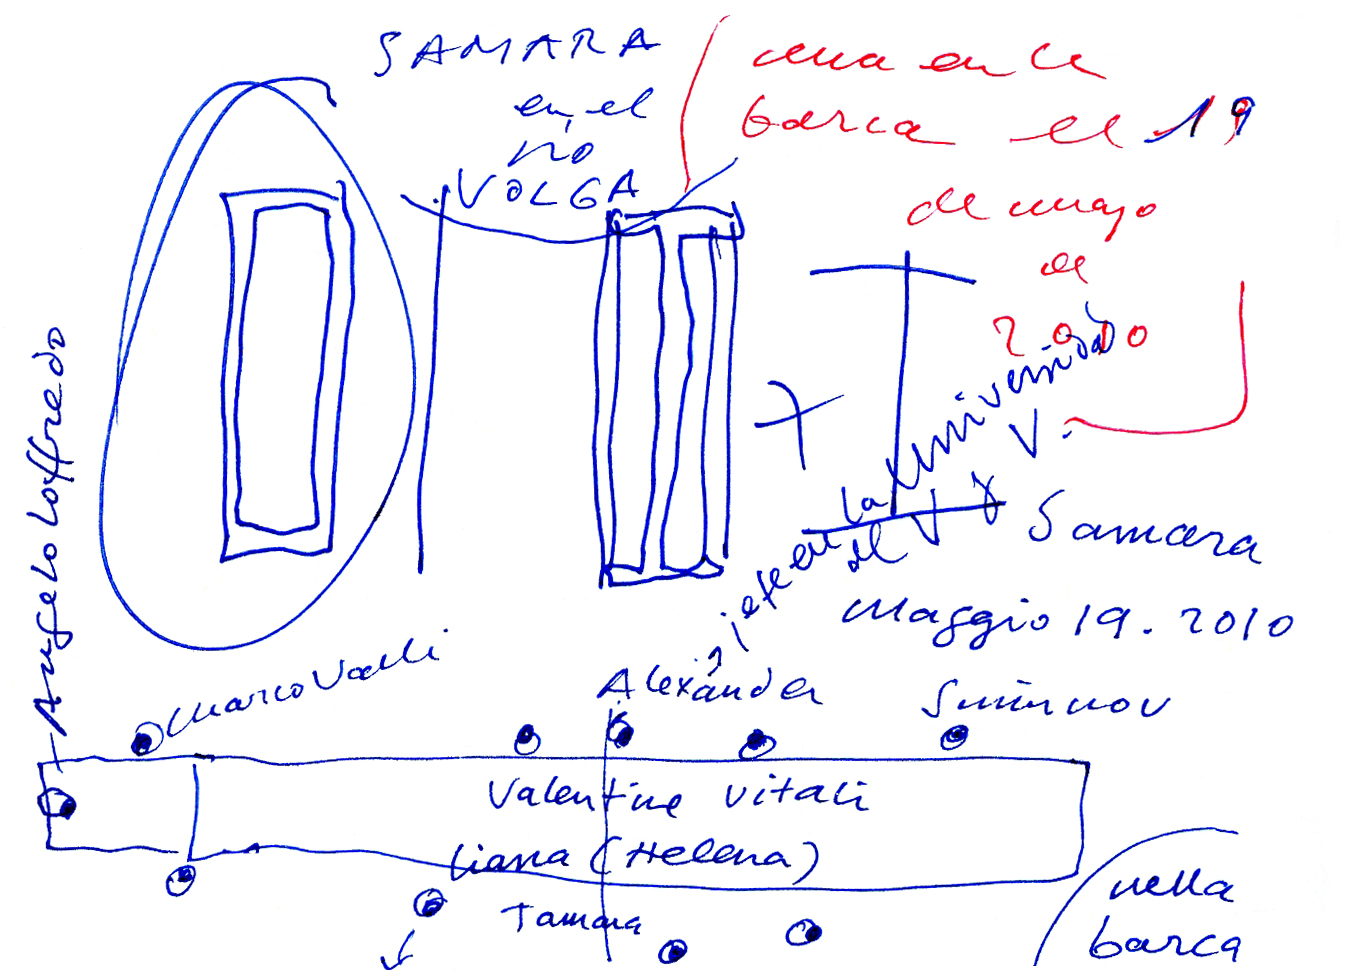 SAMARA
en el
río
VOLGA
cena en la
barca el 19
de mayo
de
2010
Angelo Loffredo
jefe en la Universidad
del V y V.
Samara
Maggio 19. 2010
Marco Valli
Alexánder
Smirnov
Valentine Vitali
Liana (Helena)
Tamara
nella
barca